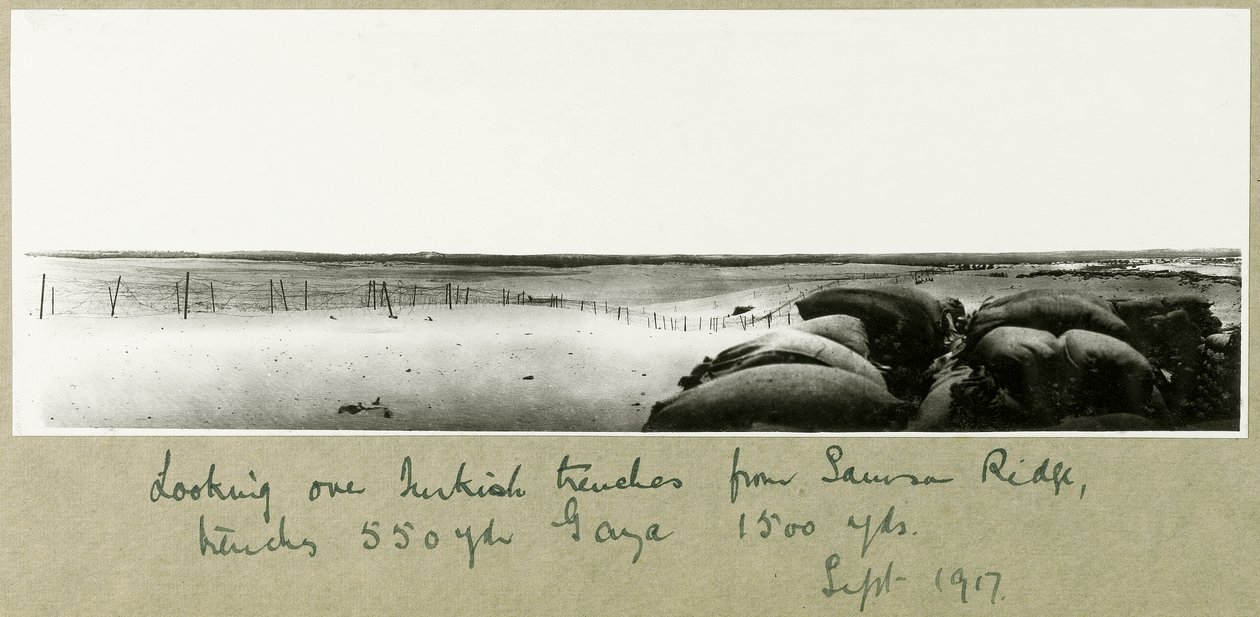 Looking over Turkish trenches from Samson Ridge,
trenches 550 yds Gaza 1500 yds.
Sept 1917.